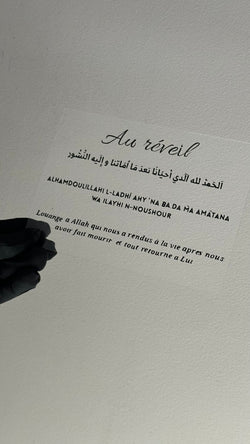 Au réveil
اَلحَمْدُ لله الَّذِي أَحيَانَا بَعدَ مَا أَمَاتَنا و إِلَيه النُّشُور
ALHAMDOULILLAHI L-LADHÎ AHY 'NA BA DA MA AMÂTANA
WA ILAYHI N-NOUSHOUR
Louange a Allah qui nous a rendus à la vie apres nous
avoir fait mourir et tout retourne a Lui